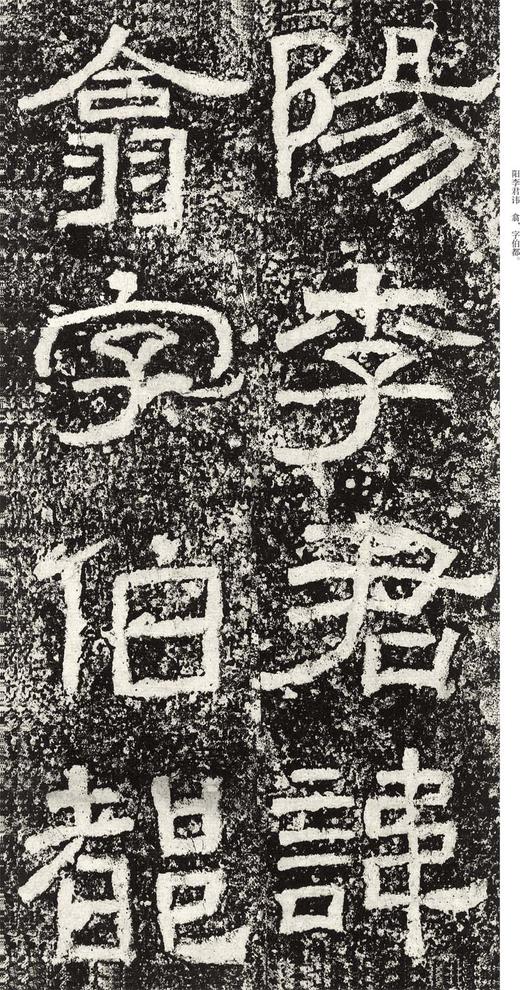 陽李君諱
翕字伯都
阳李君讳　翕，字伯都。